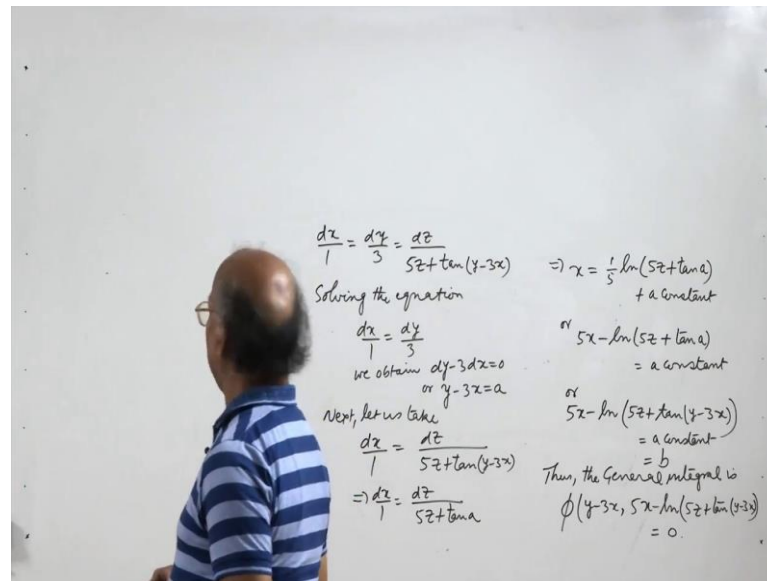 dx/1 = dy/3 = dz/(5z+tan(y-3x))
Solving the equation
dx/1 = dy/3
we obtain dy-3dx=0
or y-3x=a
Next, let us take
dx/1 = dz/(5z+tan(y-3x))
=> dx/1 = dz/(5z+tan a)
=> x = 1/5 ln(5z+tan a)
+ a constant
or 5x-ln(5z+tan a)
= a constant
or
5x-ln(5z+tan(y-3x))
= a constant
= b
Thus, the General integral is
ϕ(y-3x, 5x-ln(5z+tan(y-3x))
= 0.